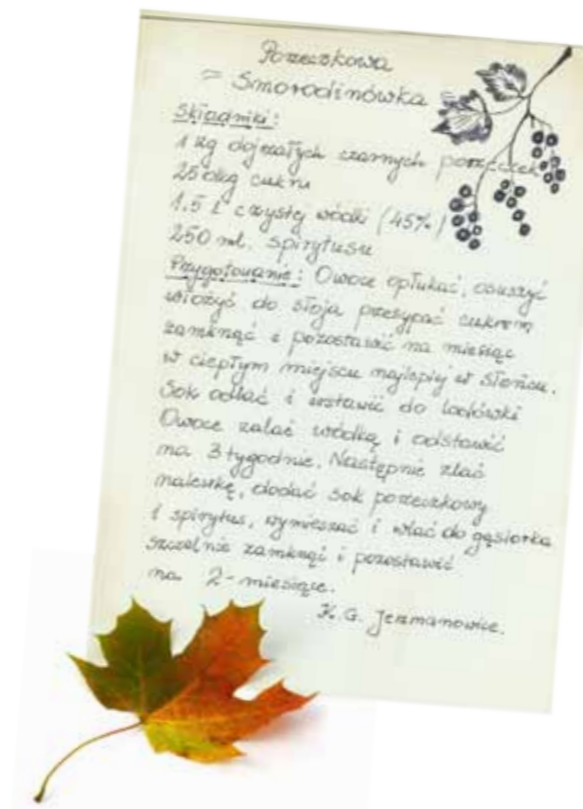 Porzeczkowa
= Smorodinówka =
Składniki:
1 kg dojrzałych czarnych porzeczek
25 dkg cukru
1,5 l czystej wódki (45%)
250 ml. spirytusu
Przygotowanie: Owoce opłukać, osuszyć
włożyć do słoja przesypać cukrem
zamknąć i pozostawić na miesiąc
w ciepłym miejscu najlepiej w słońcu.
Sok odlać i wstawić do lodówki
Owoce zalać wódką i odstawić
na 3 tygodnie. Następnie zlać
nalewkę, dodać sok porzeczkowy
i spirytus, wymieszać i wlać do gąsiorka
szczelnie zamknąć i pozostawić
na 2-miesiące.
K.G. Jerzmanowice.